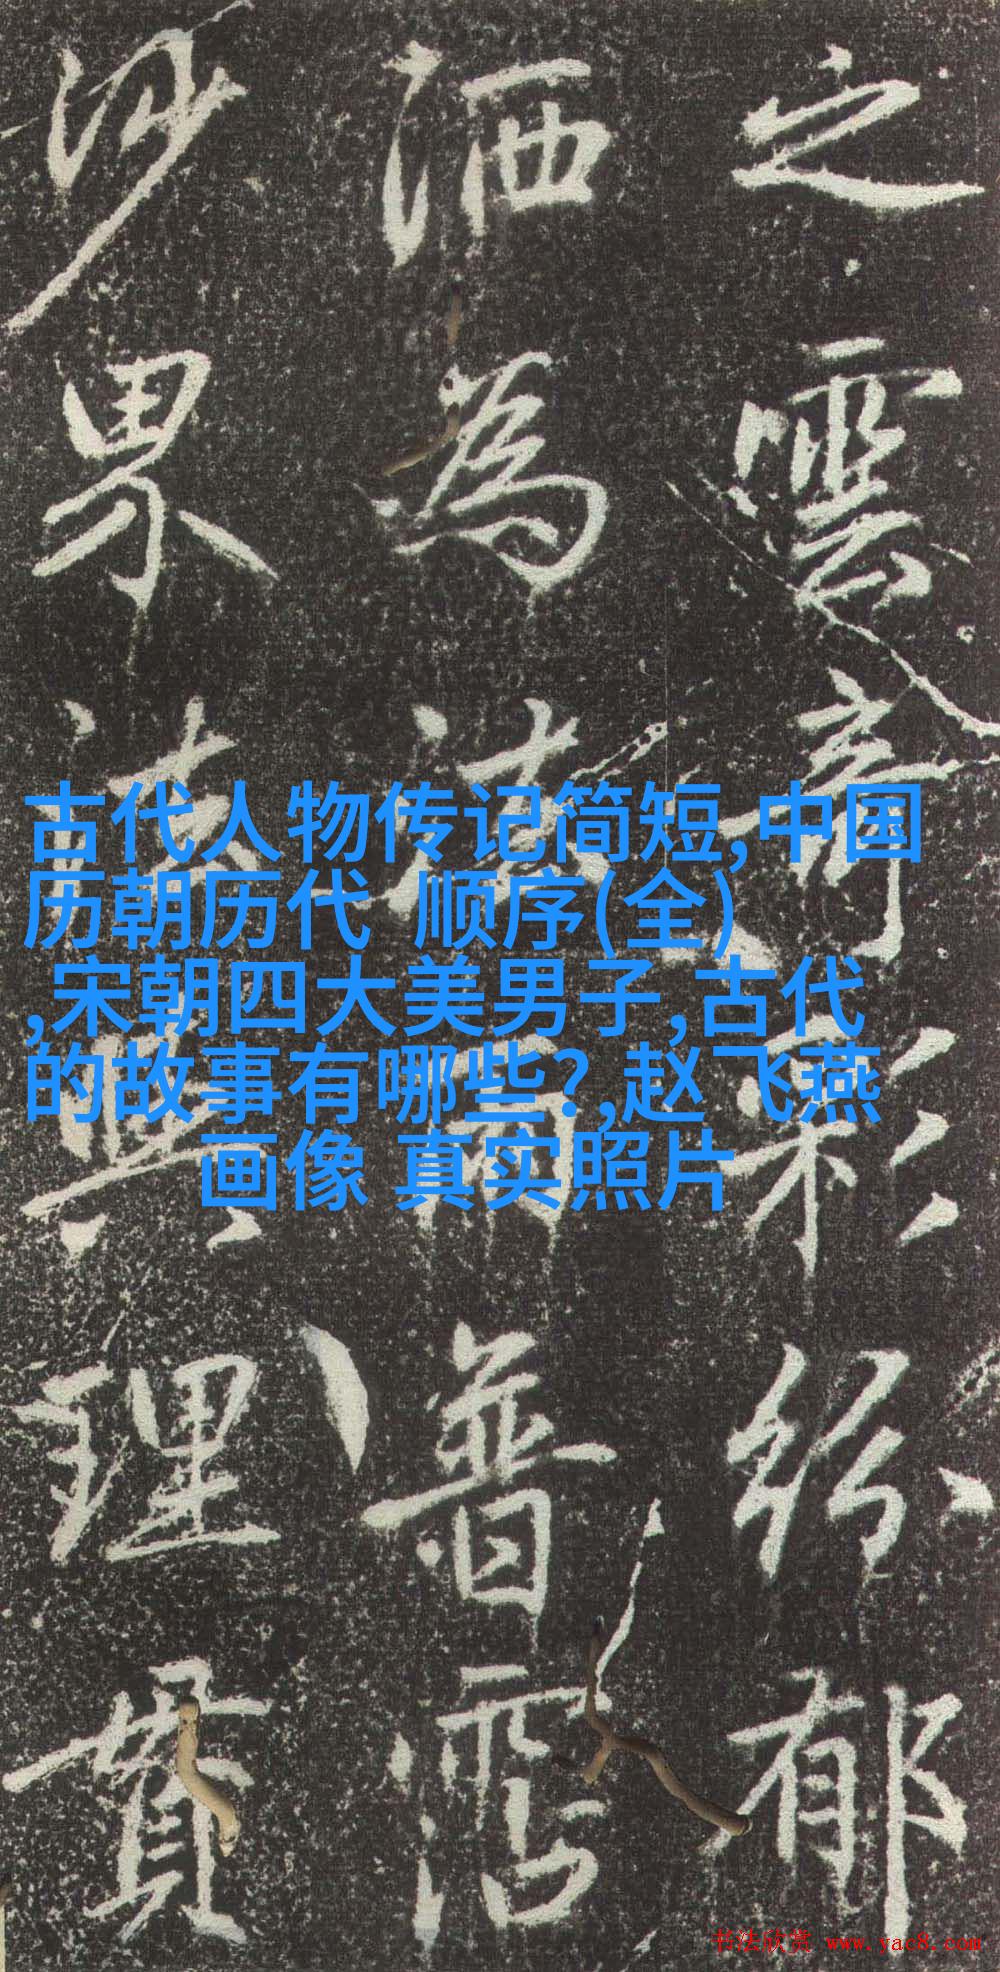 之雲奇彩紛郁
洒為法雨普霑
沙界法與理貫
古代人物传记简短,中国
历朝历代 顺序(全)
,宋朝四大美男子,古代
的故事有哪些?,赵飞燕
画像 真实照片
书法欣赏 www.yac8.com